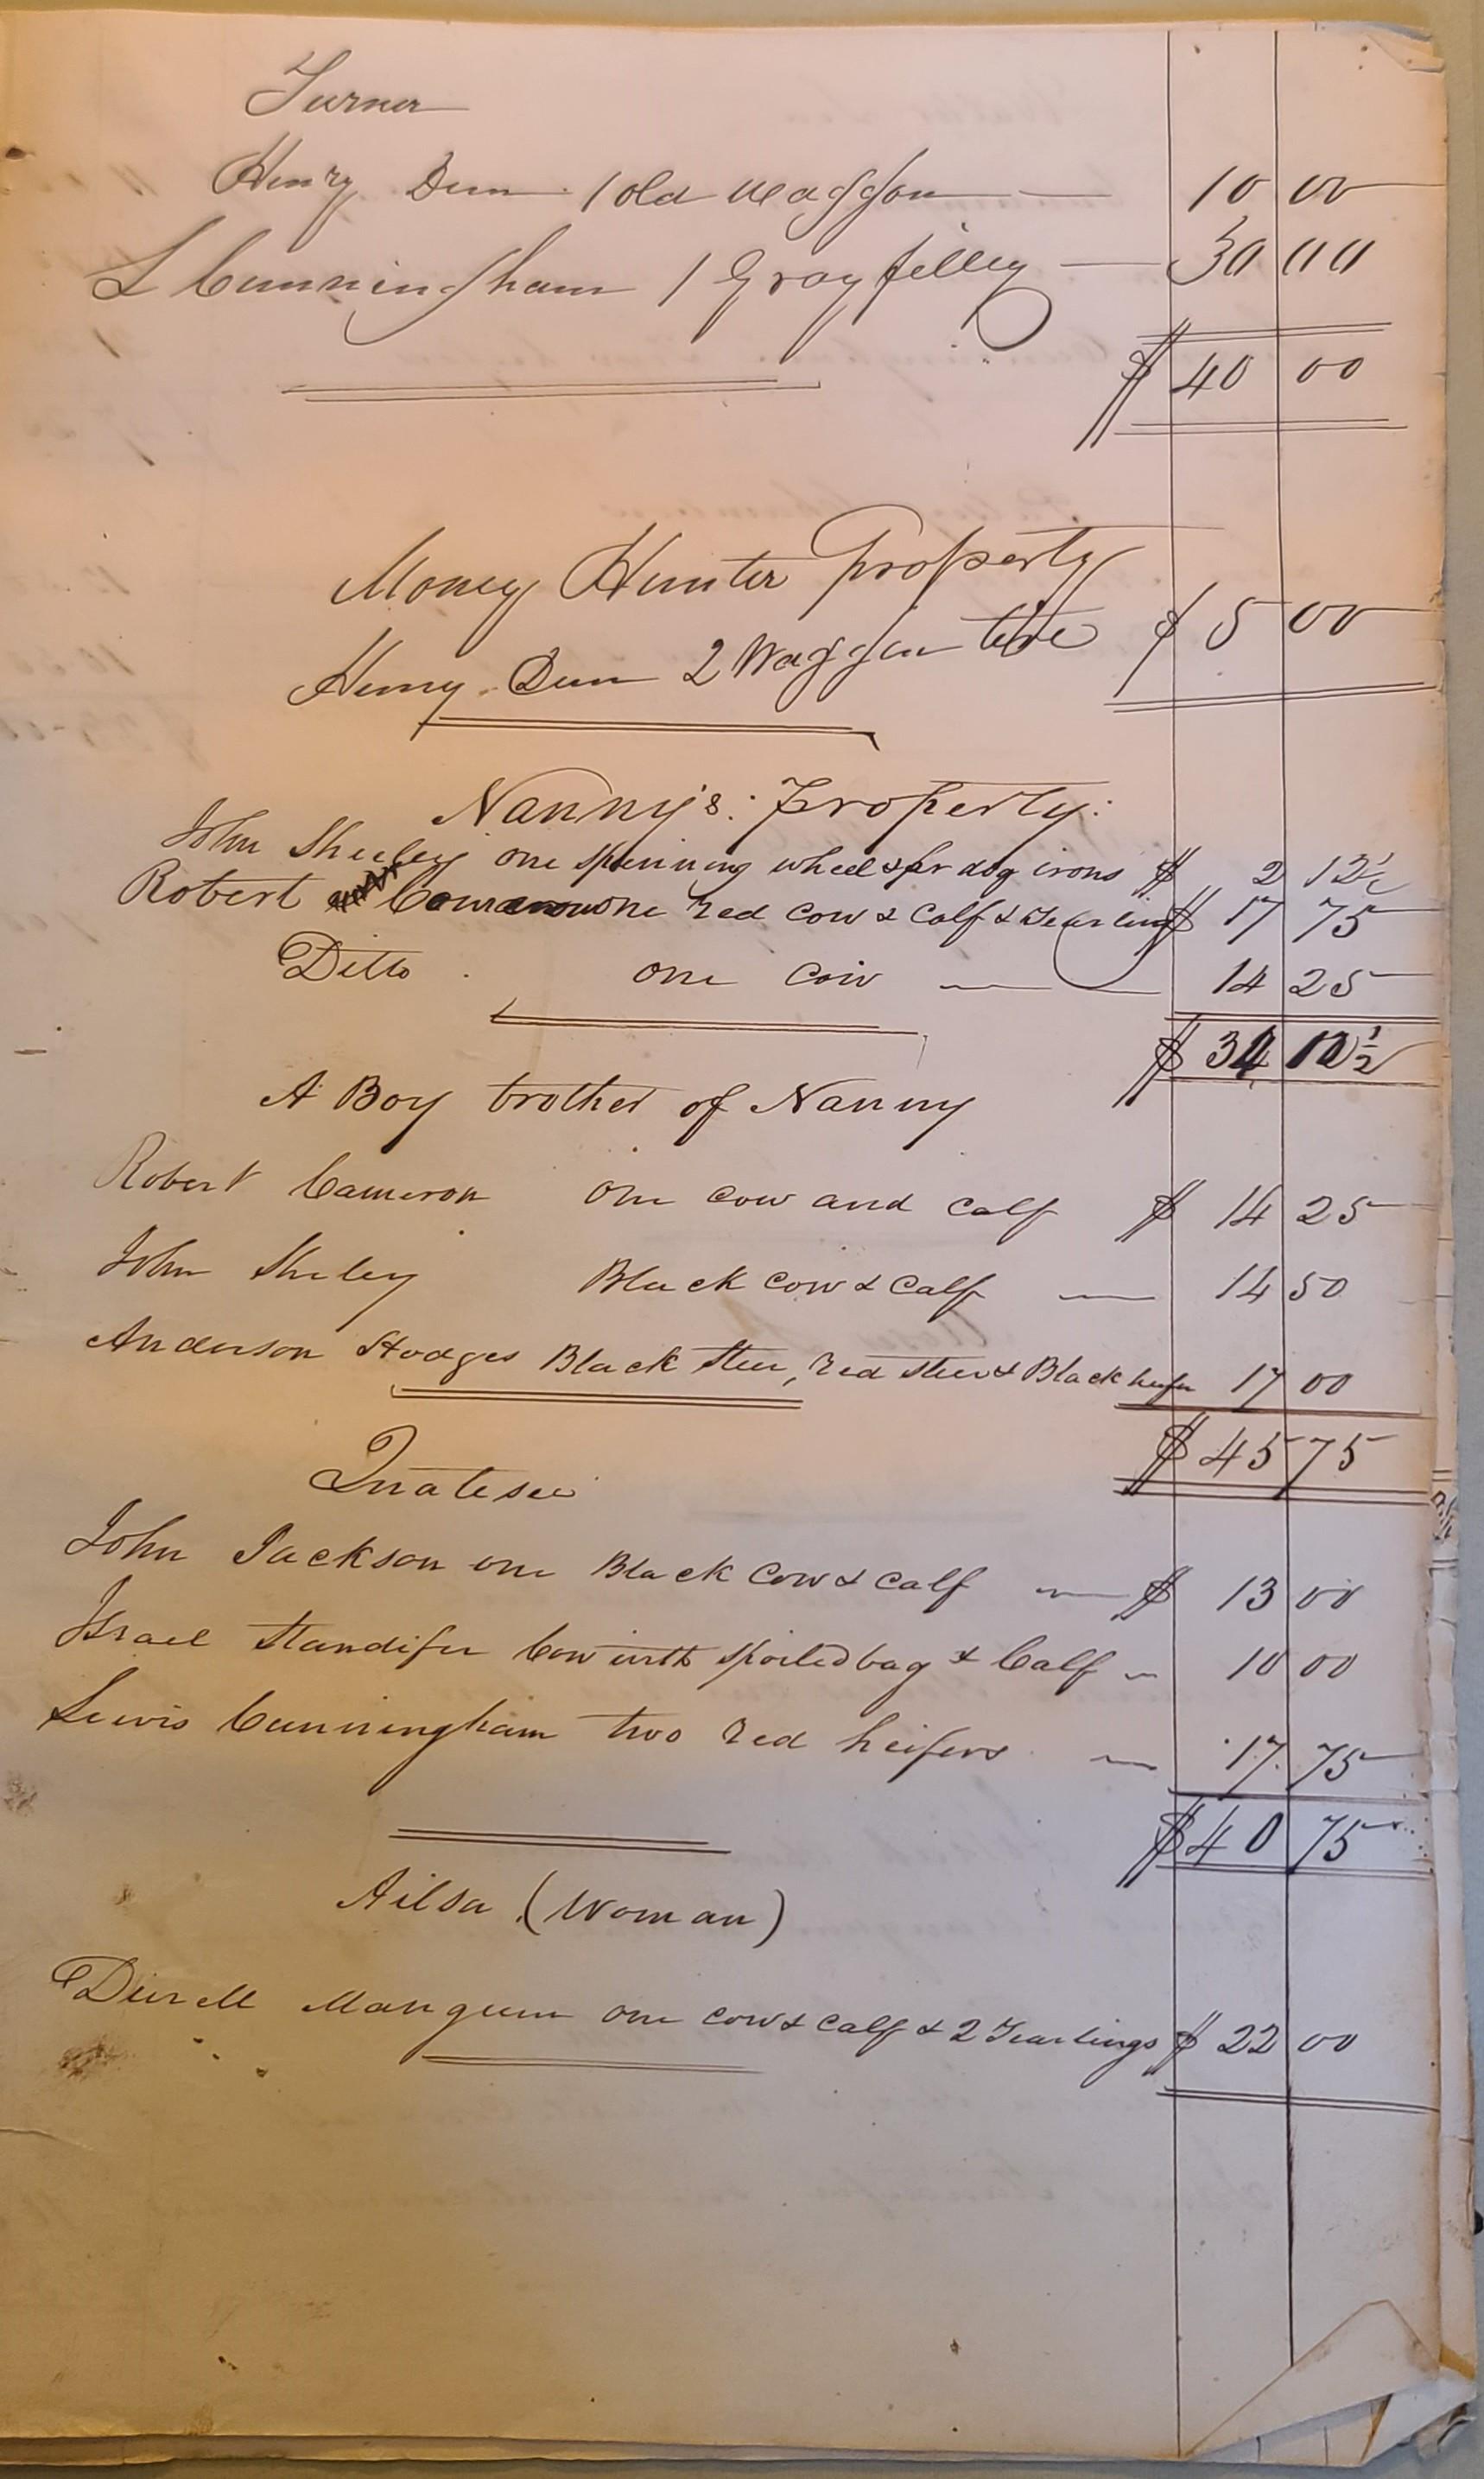 Turner
Henry Dun 1 old waggon 10 00
L Cunningham 1 Gray filley 30 00
$ 40 00
Money Hunter Property
Henry Dun 2 Waggon tire $ 5 00
Nanny's Property:
John Sheley one spinning wheel & pr dog irons $ 2 12½
Robert Cameron one red cow & calf & Yearling $ 17 75
Ditto one cow 14 25
$ 34 12½
A Boy brother of Nanny
Robert Cameron one cow and calf $ 14 25
John Sheley Black cow & calf 14 50
Anderson Hodges Black steer, red steer & Black heifer 17 00
$ 45 75
Quatesee
John Jackson one Black cow & calf $ 13 00
Israel Standifer Cow with spoiled bag & Calf 10 00
Lewis Cunningham two red heifers 17 75
$ 40 75
Ailsa (Woman)
Durell Mangum one cow & calf & 2 Yearlings $ 22 00